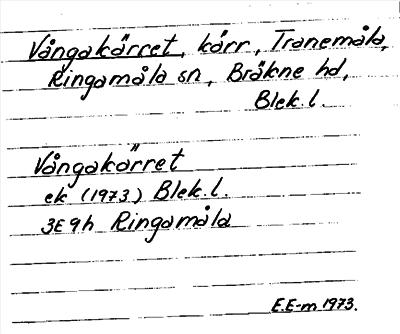 Vångakärret, kärr, Tranemåla,
Ringamåla sn, Bräkne hd,
Blek.l.
Vångakärret
ek (1973) Blek.l.
3E9h Ringamåla
E.E-m 1973.